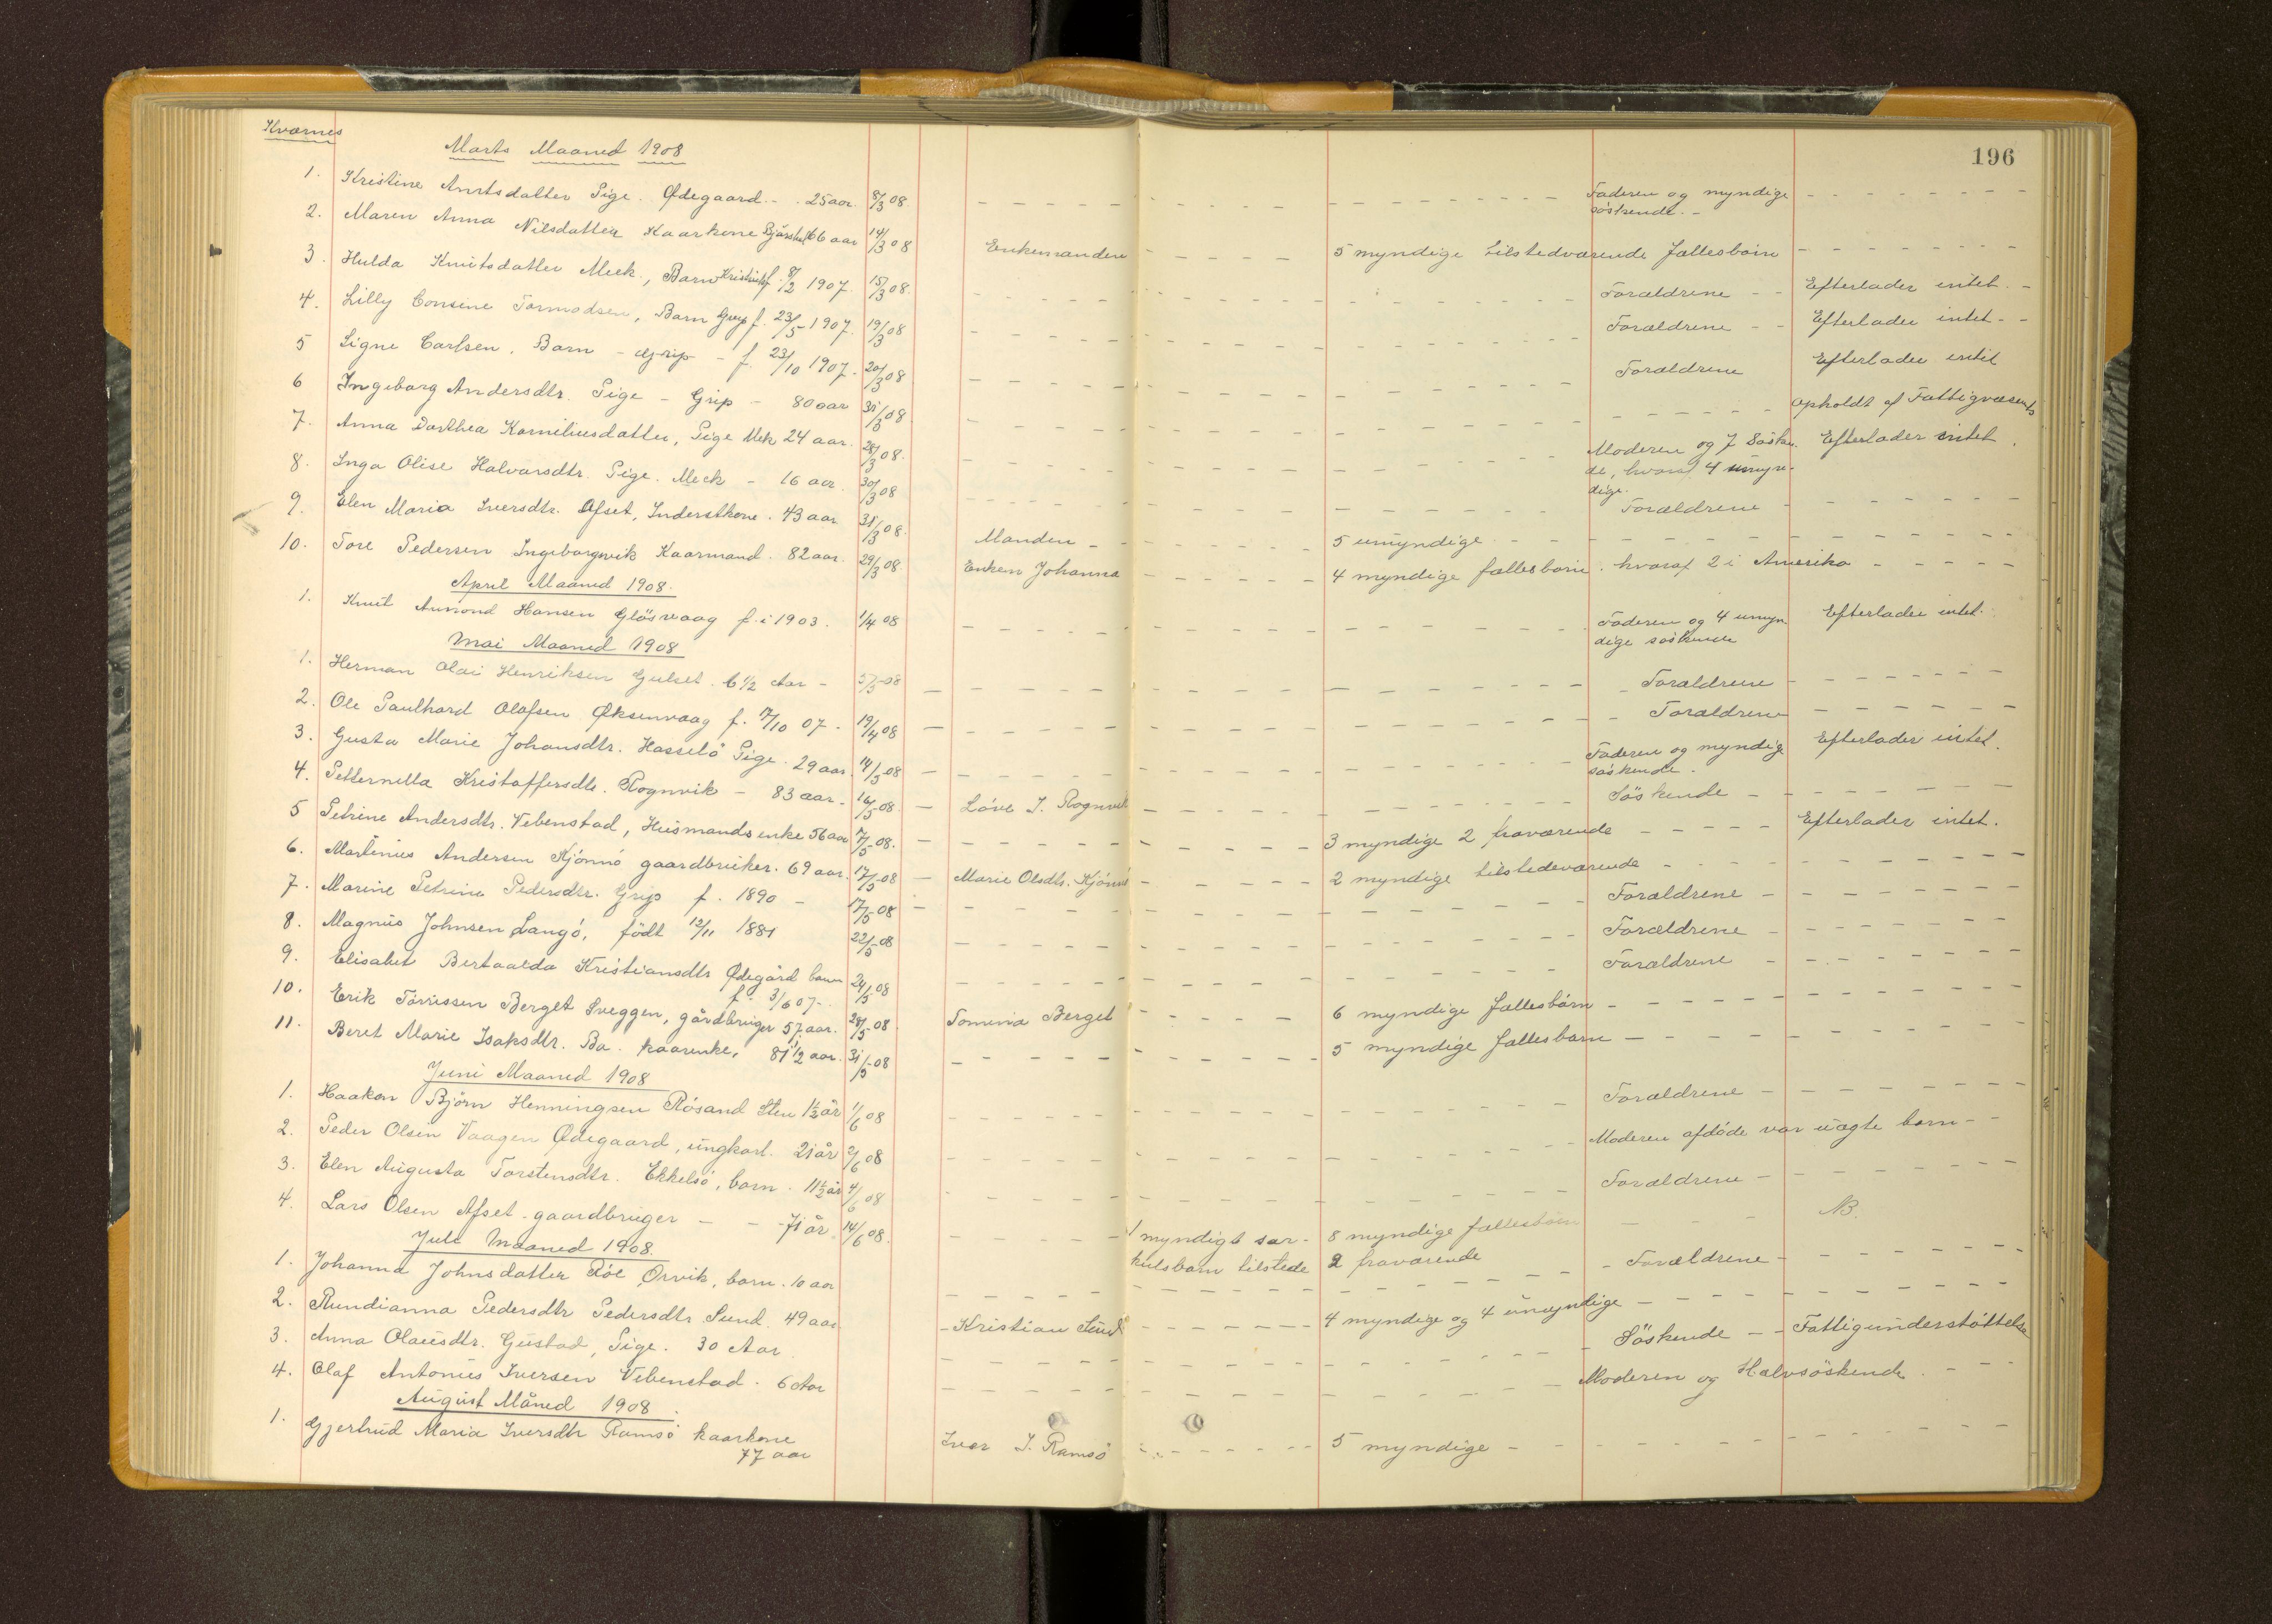 Kværnes
196
Marts Maaned 1908
1. Kristine Antsdatter Pige. Ødegaard - - 25 aar. 8/3 08. - - - Faderen og myndige
søskende. -
2. Maren Anna Nilsdatter Kaarkone 66 aar 14/3 08 Enkemanden - - - 5 myndige tilstedværende fællesbørn - - -
3. Hulda Knutsdatter Meek, Barn f. 8/2 1907. 15/3 08. - - - Forældrene - - Efterlader intet. -
4. Lilly Consine Tormodsen, Barn Grip f. 23/5 1907. 19/3 08 - - - Forældrene - - Efterlader intet - -
5 Signe Carlsen. Barn - Grip - f. 23/10 1907. 20/3 08 - - - Forældrene Efterlader intet
6 Ingeborg Andersdtr. Pige - Grip - 80 aar 31/3 08 - - - Opholdt af Fattigvæsenet
7. Anna Dorthea Korneliusdatter, Pige Mek 24 aar. 28/3 08. - - - Moderen og 7 Søsken-
de, hvoraf 4 umyn-
dige. Efterlader intet.
8. Inga Olise Halvarsdtr. Pige. Meek - 16 aar. 30/3 08 - - - Forældrene - - -
9. Elen Maria Iversdtr. Ofset, Inderstkone. 43 aar 31/3 08. Manden - - - 5 umyndige - - -
10. Tore Pedersen Ingeborgvik Kaarmand. 82 aar. 29/3 08. Enken Johanna - - - 4 myndige fællesbørn. hvoraf 2 i Amerika - - -
April Maaned 1908.
1. Knut Amond Hansen Gløsvaag f. i 1903. 1/4 08 - - - Faderen og 4 umyn
dige søskende Efterlader intet.
Mai Maaned 1908
1. Herman Olai Henriksen Gulset. 6 1/2 Aar - 5/5 08 - - - Forældrene - - -
2. Ole Paulhard Olafsen Øksenvaag f. 17/10 07 - 19/4 08 - - - Forældrene - - -
3. Gusta Marie Johansdtr. Hasselø Pige. 29 aar. 14/5 08 - - - Faderen og myndige
søskende. Efterlader intet.
4. Petternella Kristoffersdtr. Rognvik - 83 aar. 16/5 08. - Løve I. Rognvik - - - Søskende - - -
5 Petrine Andersdtr. Vebenstad, Husmandsenke 56 aar 7/5 08. - - - 3 myndige 2 fraværende - - - Efterlader intet.
6. Martinus Andersen Kjønnø gaardbruker. 69 aar. 17/5 08 - Marie Olsdtr. Kjønnø - - - 2 myndige tilstedeværende - - -
7. Marine Petrine Pedersdtr. Grip f. 1890 - 17/5 08 - - - Forældrene - - -
8. Magnus Johnsen Langø, født 12/11 1881 22/5 08 - - - Forældrene - - -
9. Elisabet Bertaalda Kristiansdtr Ødegård barn 24/5 08 - - - Forældrene - - -
f. 3/6 07 -
10. Erik Tørrissen Berget Sveggen, gårdbruger 57 aar. 28/5 08 Tomina Berget - - - 6 myndige fællesbørn - - -
11. Beret Marie Isaksdtr. Ba. kaarenke, 81 1/2 aar. 31/5 08 - - - 5 myndige fællesbarn - - -
Juni Maaned 1908
1. Haakon Bjørn Henningsen Røsand Sten 1 1/2 år 1/6 08 - - - Forældrene - - -
2. Peder Olsen Vaagen Ødegaard, ungkarl. 21 år 2/6 08 - - - Moderen afdøde var uægte barn - -
3. Elen Augusta Torstensdtr. Ekkelsø, barn. 11 1/2 år 4/6 08 - - - Forældrene - - -
4. Lars Olsen Afset. gaardbruger - - 71 år. 14/6 08. - - - 1 myndigt sær- 8 myndige fællesbørn - - - NB.
kulsbarn tilstede 2 fraværende
Juli Maaned 1908.
1. Johanna Johnsdatter Røe Ørvik, barn. 10 aar - - - Forældrene - - -
2. Rundianna Pedersdtr Pedersdtr. Sund. 49 aar - Kristian Sund - - - 4 myndige og 4 umyndige - - -
3. Anna Olausdtr. Gustad, Pige. 30 Aar - - - Søskende - - Fattigunderstøttelse
4. Olaf Antonius Iversen Vebenstad. 6 Aar - - - Moderen og Halvsøskende. - - -
August Måned 1908.
1. Gjertrud Maria Iversdtr Ramsø kaarkone Iver I. Ramsø - - - 5 myndige - - -
77 aar